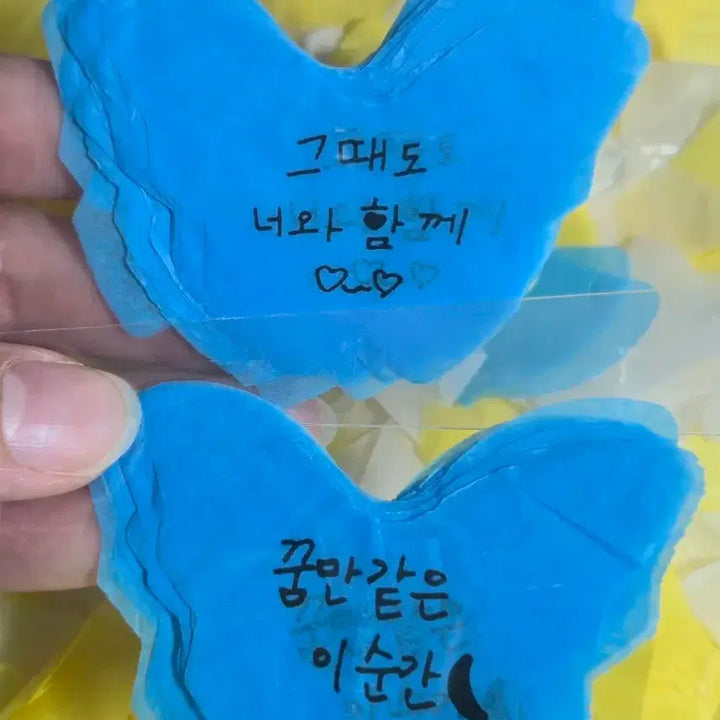 그때도
너와 함께
♡~♡
꿈만같은
이순간